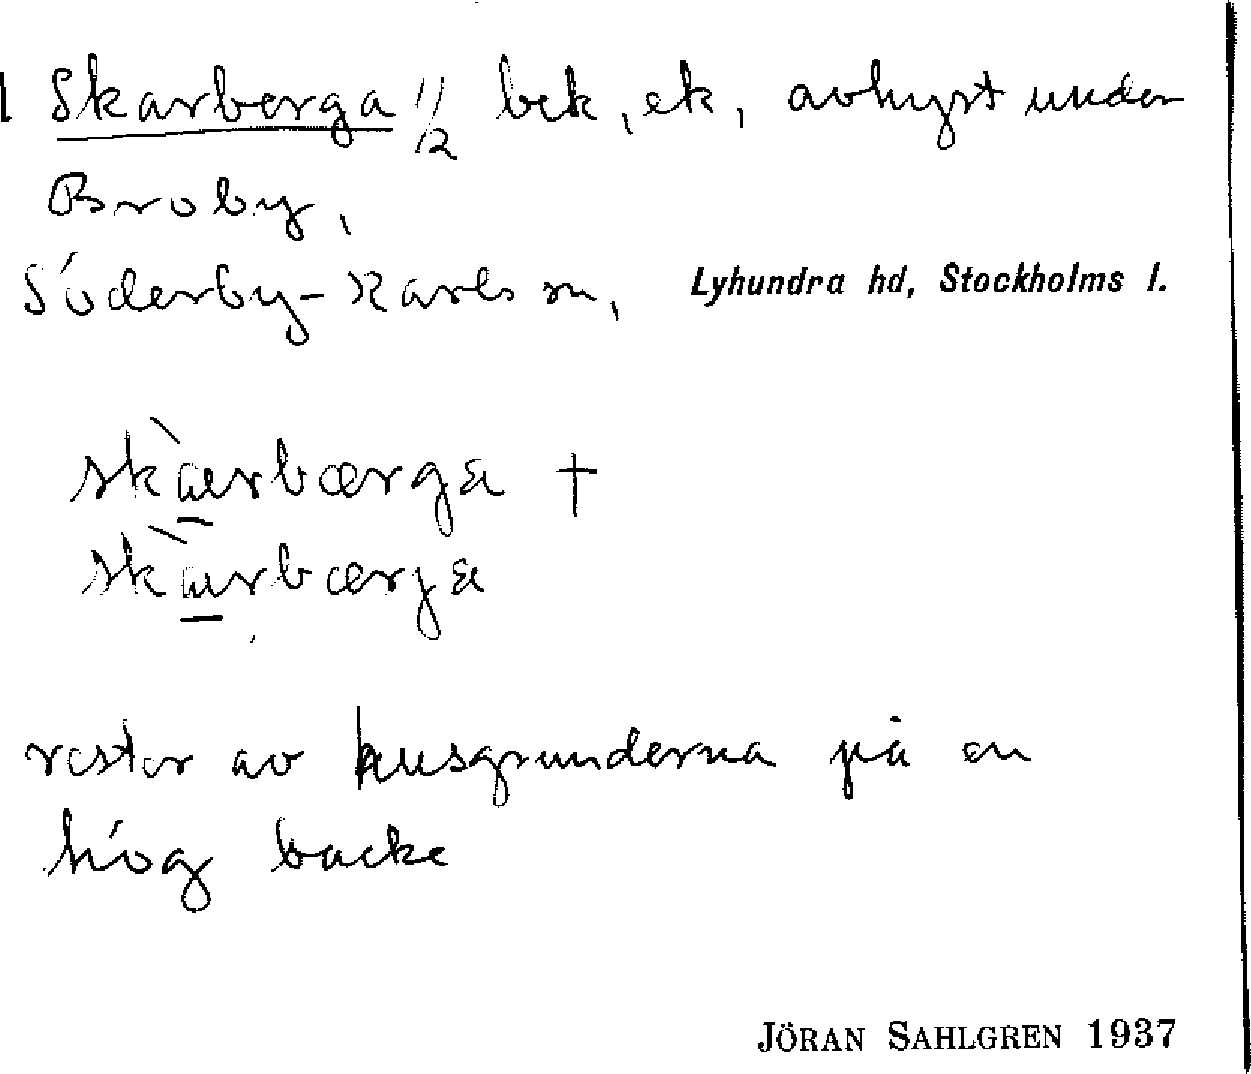 Skarberga 1/2 bek, ek, avhyst under
Broby,
Söderby-Karls sn, Lyhundra hd, Stockholms l.
skàrbærga †
skàrbærja
rester av husgrunderna på en
hög backe
JÖRAN SAHLGREN 1937